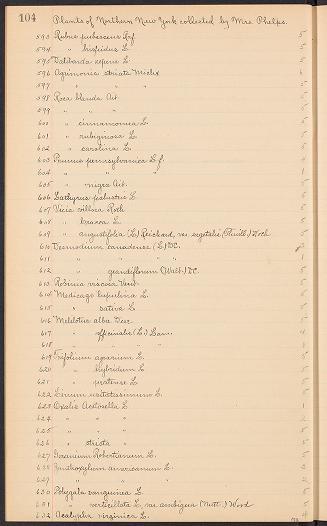 104 Plants of Northern New York collected by Mrs. Phelps.
593 Rubus pubescens Raf. 5
594 " hispidus L. 5
595 Dalibarda repens L. 5
596 Agrimonia striata Michx 6
597 " " " 5
598 Rosa blanda Ait. 5
599 " " " 5
600 " cinnamomea L. 5
601 " rubiginosa L. 5
602 " carolina L. 5
603 Prunus pennsylvanica L.f. 4
604 " " " 1
605 " nigra Ait. 5
606 Lathyrus palustris L. 5
607 Vicia villosa Roth 5
608 " cracca L. 5
609 " angustifolia (L.) Reichard, var. segetalis (Thuill.) Koch 5
610 Desmodium canadense (L.) DC.
611 " " " " 5
612 " grandiflorum (Walt.) DC. 5
613 Robinia viscosa Vent. 5
614 Medicago lupulina L. 5
615 " sativa L. 5
616 Melilotus alba Desr. 5
617 " officinalis (L.) Lam. 4
618 " " " 1
619 Trifolium agrarium L. 5
620 " hybridum L. 5
621 " pratense L. 5
622 Linum usitatissimum L. 5
623 Oxalis Acetosella L. 1
624 " " " 2
625 " " " 5
626 " stricta " 5
627 Geranium Robertianum L. 5
628 Zanthoxylum americanum L. 2
629 " " " 2
630 Polygala sanguinea L. 5
631 " verticillata L. var. ambigua (Nutt.) Wood 5
632 Acalypha virginica L. 4